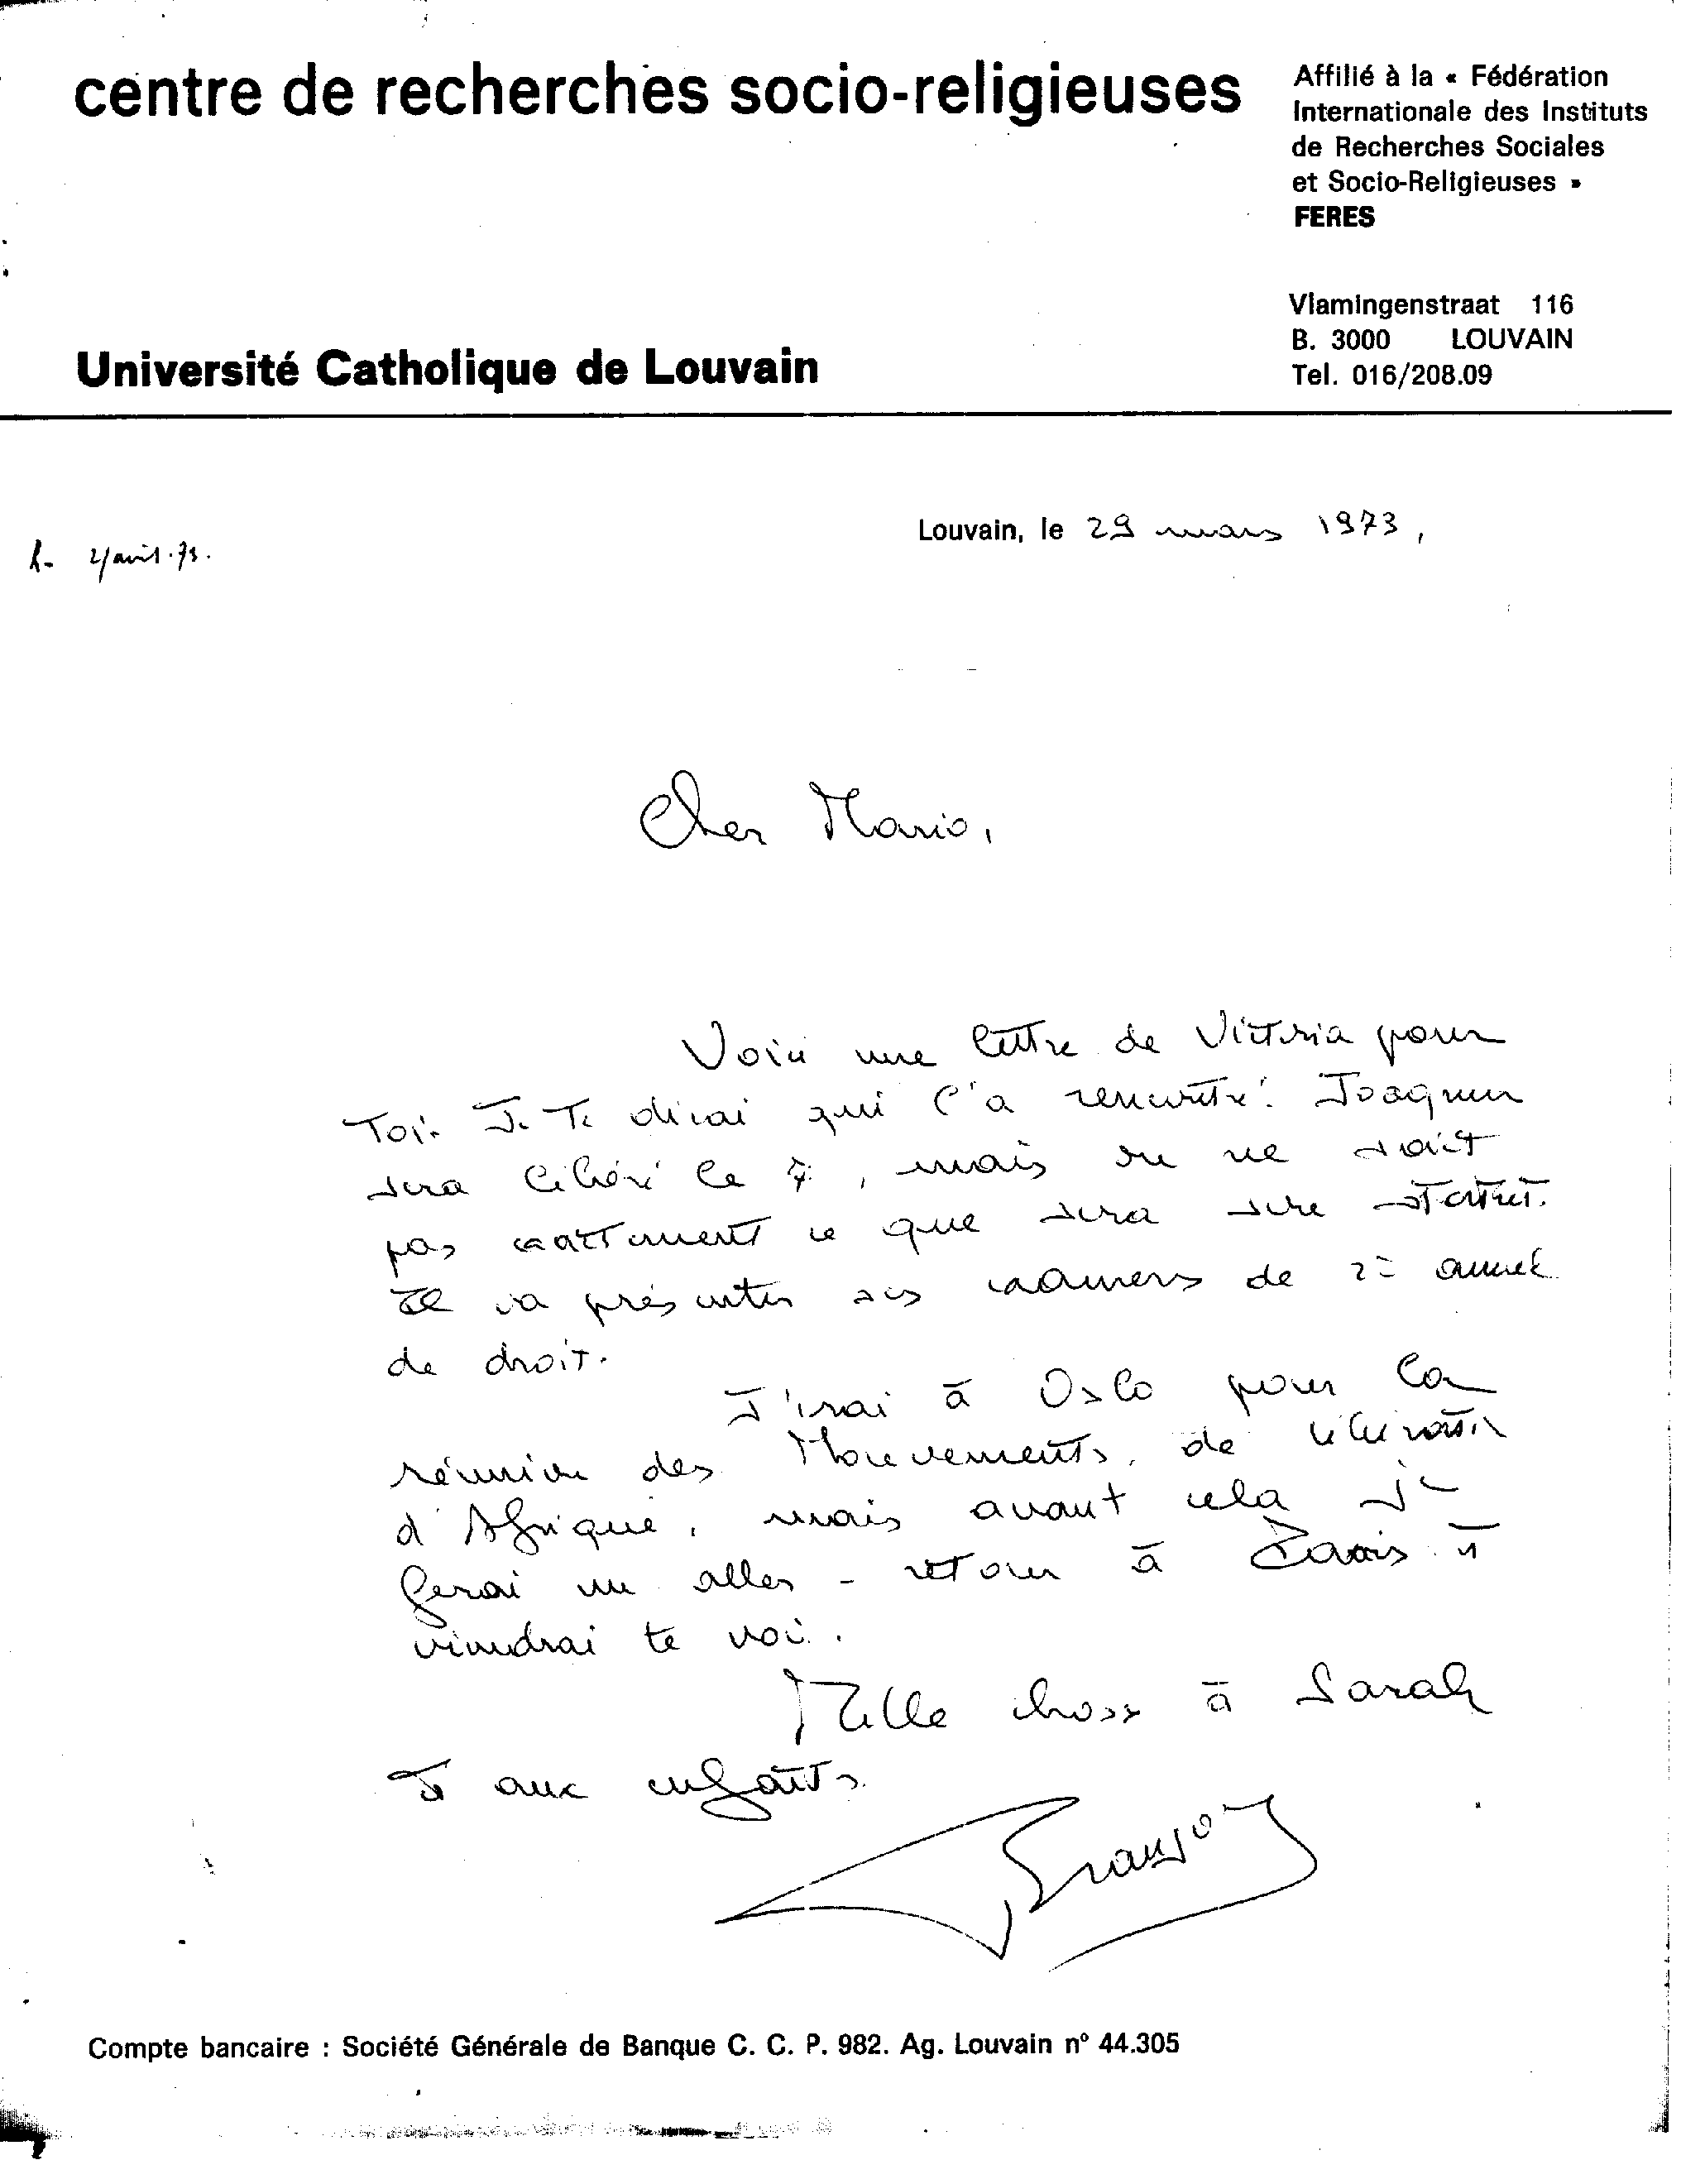 centre de recherches socio-religieuses
Affilié à la « Fédération
Internationale des Instituts
de Recherches Sociales
et Socio-Religieuses »
FERES
Vlamingenstraat 116
B. 3000 LOUVAIN
Tel. 016/208.09
Université Catholique de Louvain
Louvain, le 29 mars 1973,
2/avril.73.
Cher Mario,
Voici une lettre de Victoria pour
Toi. Je Te dirai qui l'a rencontré. Joaquim
sera libéré le 7, mais on ne sait
pas exactement ce que sera
Il va présenter ses examens de 2e année
de droit.
J'irai à Oslo pour la
réunion des Mouvements de libération
d'Afrique, mais avant cela je
ferai un aller-retour à Paris et
viendrai te voir.
Mille choses à Sarah
et aux enfants.
François
Compte bancaire : Société Générale de Banque C. C. P. 982. Ag. Louvain n° 44.305